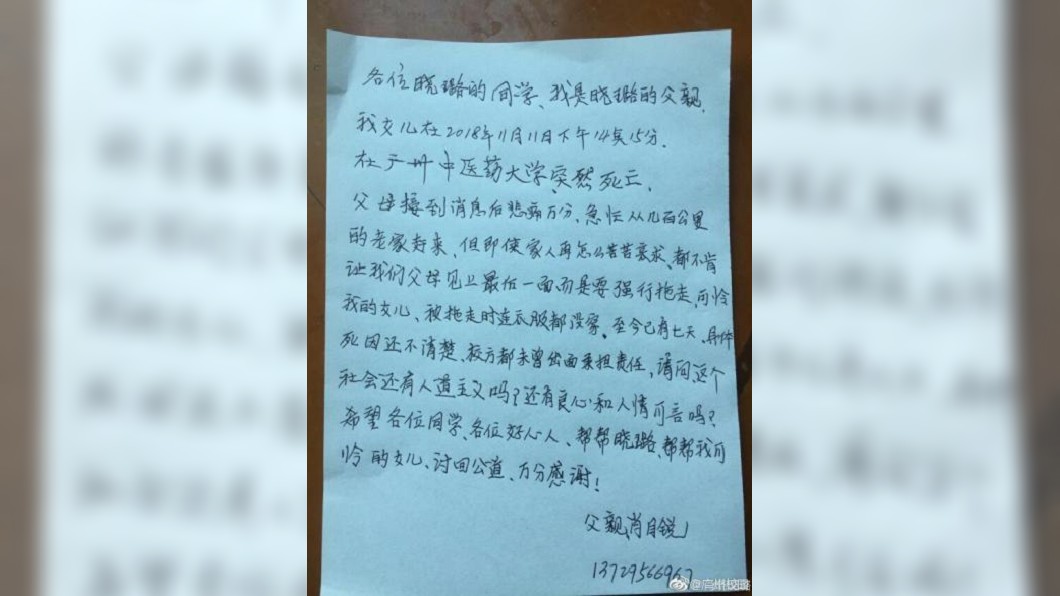 各位晓璐的同学、我是晓璐的父亲,
我女儿在2018年11月11日下午14点15分.
在广州中医药大学突然死亡.
父母接到消息后悲痛万分、急忙从几百公里
的老家赶来,但即使家人再怎么苦苦哀求、都不肯
让我们父母见上最后一面、而是要强行拖走,可怜
我的女儿、被拖走时连衣服都没穿。至今已有七天、具体
死因还不清楚、校方都未曾出面承担责任,请问这个
社会还有人道主义吗?还有良心和人情可言吗?
希望各位同学、各位好心人、帮帮晓璐、帮帮我可
怜的女儿、讨回公道、万分感谢!
父亲、肖自锐
13729566967
@广州校璐